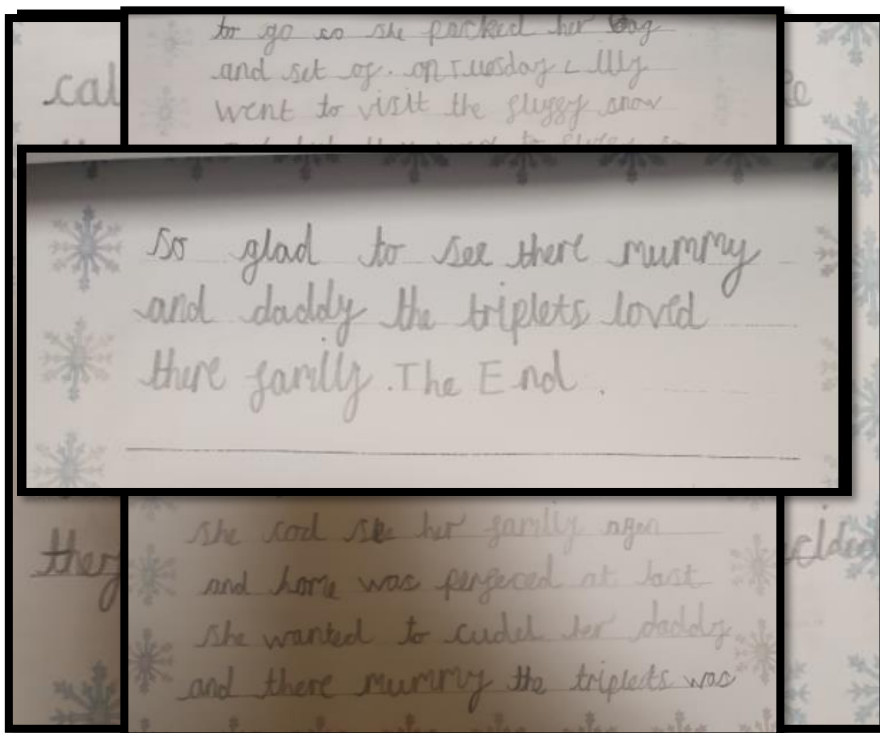 to go so she packed her bag
and set of. on Tuesday Lilly
went to visit the fluffy snow
cal
so glad to see there mummy
and daddy the triplets loved
there familly. The End.
she cod see her familly agen
and home was perfeced at last
they
she wanted to cudel her daddy
and there mummy the triplets was